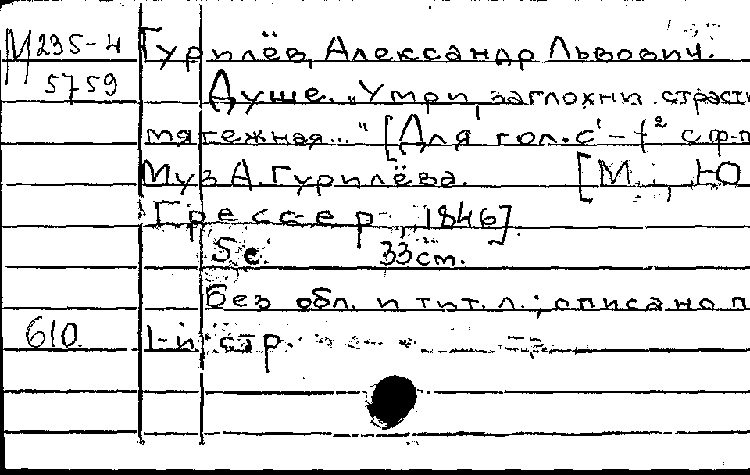 М235-4 Гурилёв, Александр Львович.
5759 Душе. "Умри, заглохни страсть
мятежная..." [Для гол. c¹-f² с ф.-п
Муз А. Гурилёва. [М.; Ю
Грессер, 1846].
5 с. 33 см.
Без обл. и тит. л.; описано п
610 1-й стр.